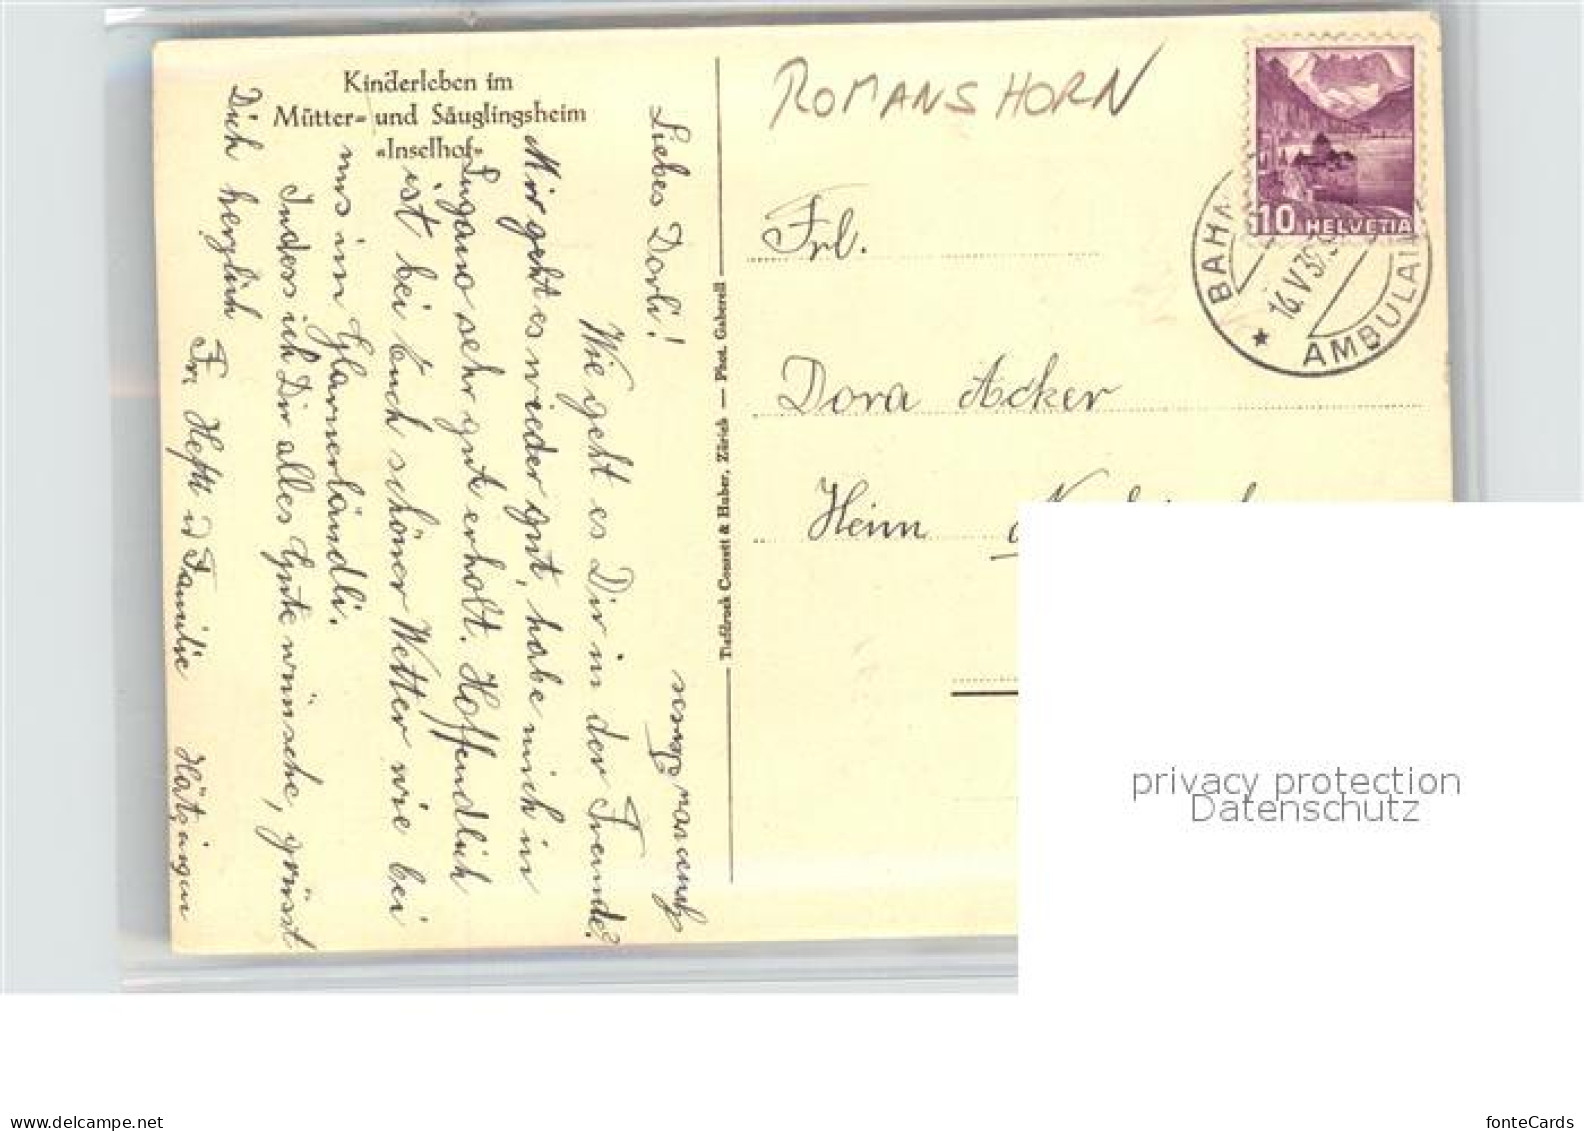 Kinderleben im
Mütter- und Säuglingsheim
«Inselhof»
ROMANSHORN
10 HELVETIA
BAH
16.V.39
AMBULA
Liebes Dorli!
Wie geht es Dir in der Fremde?
Mir geht es wieder gut, habe mich in
Lugano sehr gut erholt. Hoffendlich
ist bei Euch schöner Wetter wie bei
uns im Glarnerländli.
Indess ich Dir alles Gute wünsche, grüsst
Dich herzlich
Fr. Hefti u Familie Hätzingen
Tiefdruck Conzett & Huber, Zürich — Phot. Gaberell
Frl.
Dora Acker
Heim
privacy protection
Datenschutz
www.delcampe.net
fonteCards